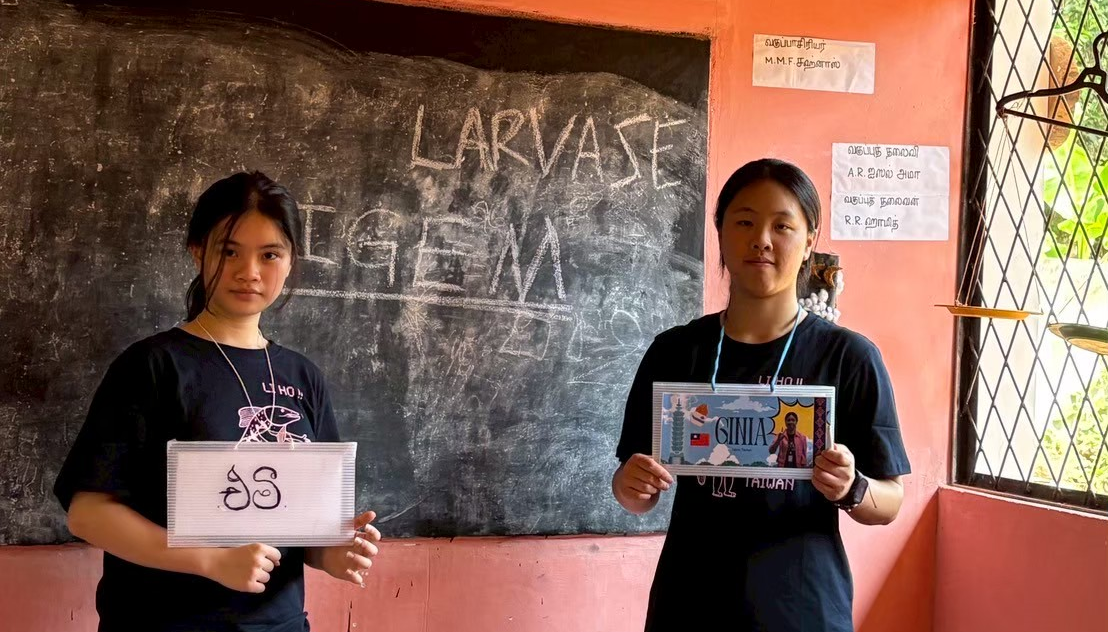 LARVASE
IGEM
வகுப்பாசிரியர்
M.M.F.சஹ்னாஸ்
வகுப்புத் தலைவி
A.R. ஐஸல் அமா
வகுப்புத் தலைவன்
R.R. ஹாமித்
LI HO !!
LI HO !!
GINIA
TAIWAN